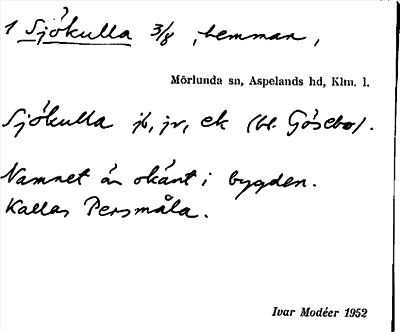 1 Sjökulla 3/8, hemman,
Mörlunda sn, Aspelands hd, Klm. l.
Sjökulla jb, jr, ek (bl. Gösebo).
Namnet är okänt i bygden.
Kallas Persmåla.
Ivar Modéer 1952